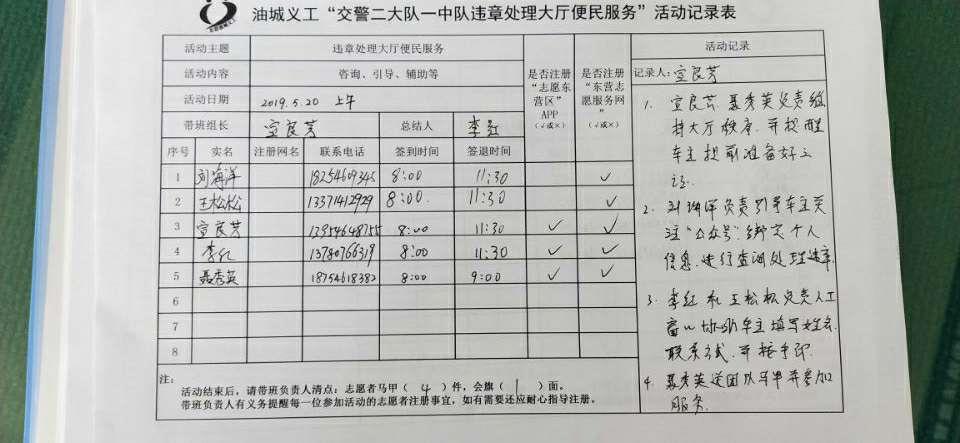 油城义工“交警二大队一中队违章处理大厅便民服务”活动记录表
活动主题 违章处理大厅便民服务
活动内容 咨询、引导、辅助等
活动日期 2019.5.20 上午
带班组长 宣良芳 总结人 李红
是否注册“志愿东营区”APP（√或×）
是否注册“东营志愿服务网”（√或×）
序号 实名 注册网名 联系电话 签到时间 签退时间
1 刘海洋 8:00 11:30 √
2 王松松 13371412929 8:00 11:30 √
3 宣良芳 8:00 11:30 √ √
4 李红 13780766319 8:00 11:30 √ √
5 聂秀英 18754618382 8:00 9:00 √ √
6
7
8
注：
活动结束后，请带班负责人清点：志愿者马甲（ 4 ）件，会旗（ 1 ）面。
带班负责人有义务提醒每一位参加活动的志愿者注册事宜，如有需要还应耐心指导注册。
活动记录
记录人：宣良芳
1. 宣良芳 聂秀英负责维
持大厅秩序，并提醒
车主提前准备好
2. 刘海洋负责引导车主关
注“公众号”绑定个人
信息，进行查询处理违章
3. 李红和王松松负责人工
窗口 车主填写姓名
联系方式，并按手印.
4. 聂秀英送团队马甲并参加
服务.